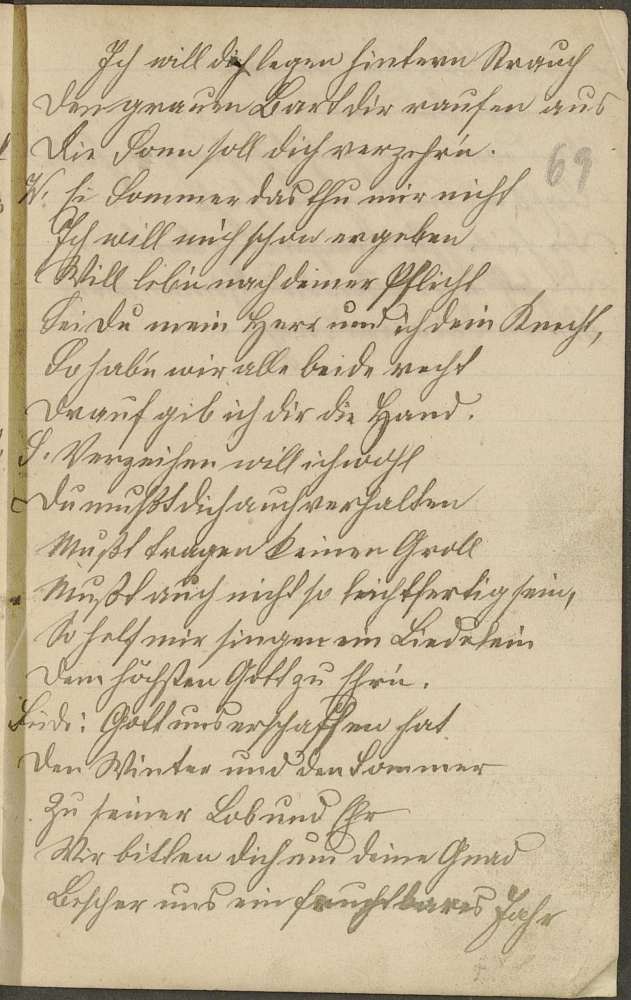 Ich will dich legen hintern Strauch
Den grauen Bart dir raufen aus
Die Sonn soll dich verzehr'n.
69
W. Ei Sommer das thu mir nicht
Ich will mich schon ergeben
Will leb'n nach deiner Pflicht
Sei du mein Herr und ich dein Knecht,
So hab'n wir alle beide recht
Drauf gib ich dir die Hand.
S. Verzeihen will ich wohl
Du mußt dich auch verhalten
Mußt tragen keinen Groll
Mußt auch nicht so leichtfertig sein,
So helf mir singen ein Liedelein
Dem höchsten Gott zu Ehr'n.
Beide: Gott uns erschaffen hat
Den Winter und den Sommer
Zu seiner Lob und Ehr
Wir bitten dich um deine Gnad
Bescher uns ein fruchtbares Jahr